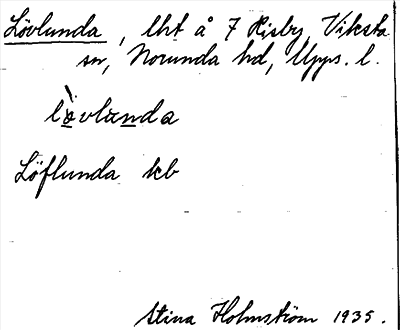 Lövlunda, lht å 7 Risby, Viksta
sn, Norunda hd, Upps. l.
lòvlunda
Löflunda kb
Stina Holmström 1935.